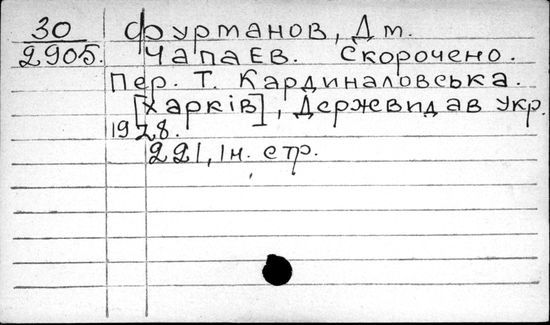 30 Фурманов, Дм.
2905. Чапаєв. Скорочено.
Пер. Т. Кардиналовська.
[Харків], Держвидав Укр.
1928.
221, Ін. стр.